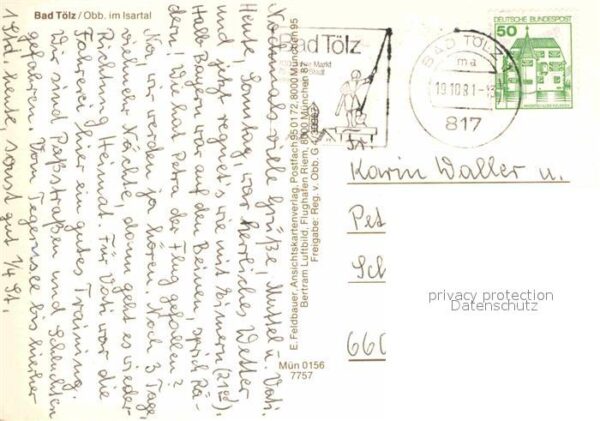 Bad Tölz / Obb. im Isartal
Nochmals viele Grüße! Muttel u. Vati.
Heute, Sonntag, war herrliches Wetter
und jetzt regnet's wie mit Eimern (21⁰⁰).
Halb Bayern war auf den Beinen, sprich Rä-
dern! Wie hat Petra der Flug gefallen?
Na, wir werden ja hören. Noch 3 Tage,
vielmehr Nächte, dann geht es wieder
Richtung Heimat. Für Vati war die
Fahrerei hier ein gutes Training.
Wir sind Paßstraßen und Schluchten
gefahren. Vom Tegernsee bis hierher
1 Std. heute, sonst gut 1/4 St.
E. Feldbauer, Ansichtskartenverlag, Postfach 95 01 72, 8000 München 95
Bertram Luftbild, Flughafen Riem, 8000 München 87
Freigabe: Reg. v. Obb. G
Mün 0156
7757
Bad Tölz
Markt
Stadt
BAD TÖLZ
ma
19.10.81-
817
DEUTSCHE BUNDESPOST
50
Karin Waller u.
Pet
Sch
660
privacy protection
Datenschutz